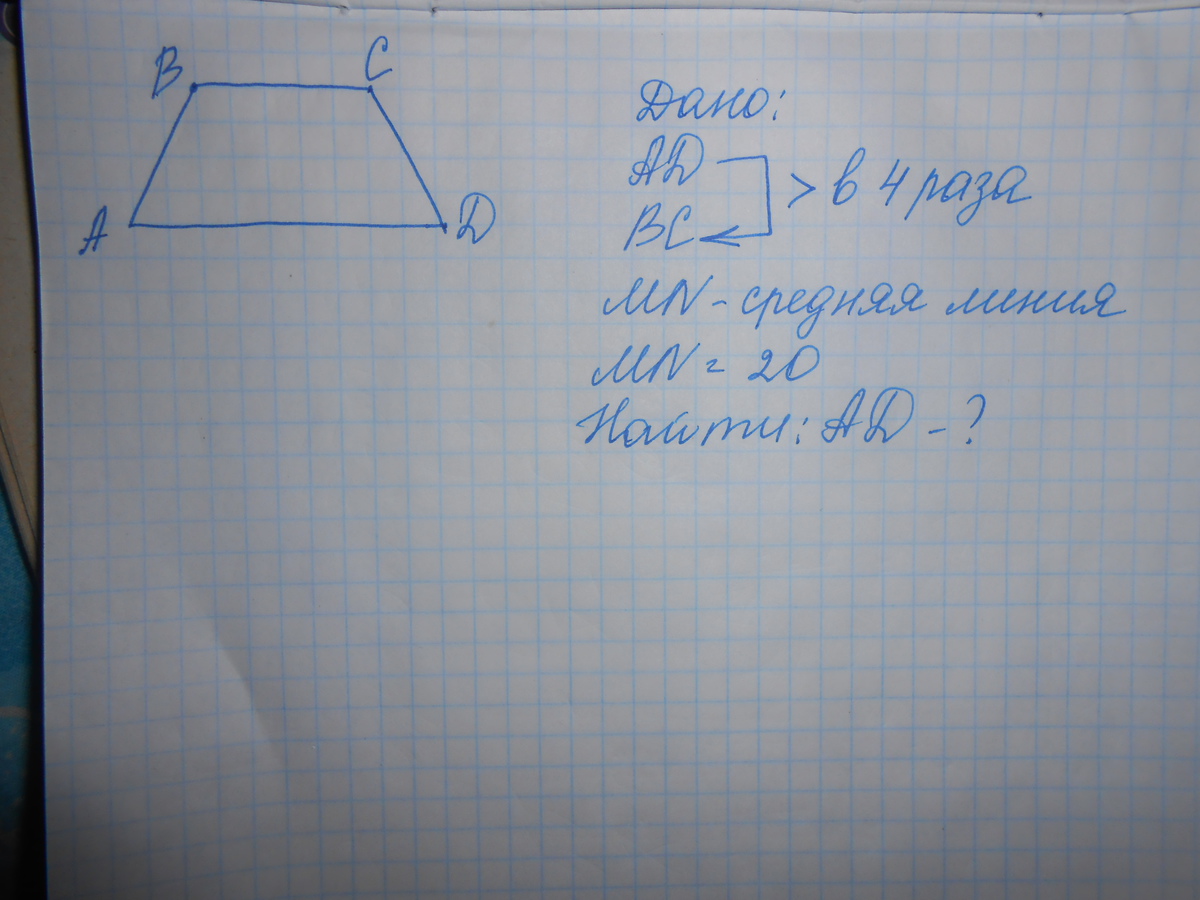 B
C
A
D
Дано:
AD
BC
> в 4 раза
MN - средняя линия
MN = 20
Найти: AD - ?